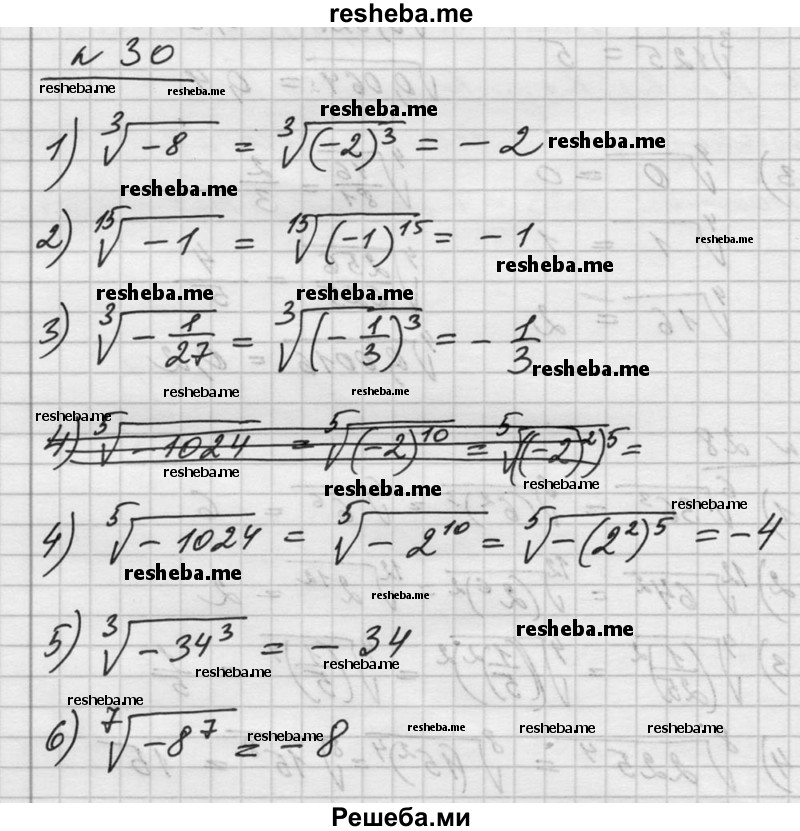 resheba.me
№ 30
resheba.me resheba.me
resheba.me
1) ∛(-8) = ∛((-2)³) = -2 resheba.me
resheba.me
2) ¹⁵√(-1) = ¹⁵√((-1)¹⁵) = -1 resheba.me
resheba.me
resheba.me resheba.me
3) ∛(-1/27) = ∛((-1/3)³) = -1/3
resheba.me
resheba.me resheba.me
resheba.me
4) ⁵√(-1024) = ⁵√((-2)¹⁰) = ⁵√(((-2)²)⁵) =
resheba.me resheba.me
resheba.me resheba.me
4) ⁵√(-1024) = ⁵√(-2¹⁰) = ⁵√(-(2²)⁵) = -4
resheba.me
resheba.me
resheba.me
5) ∛(-34³) = -34
resheba.me resheba.me
resheba.me
6) ⁷√(-8⁷) = -8
resheba.me resheba.me resheba.me resheba.me
Решеба.ми